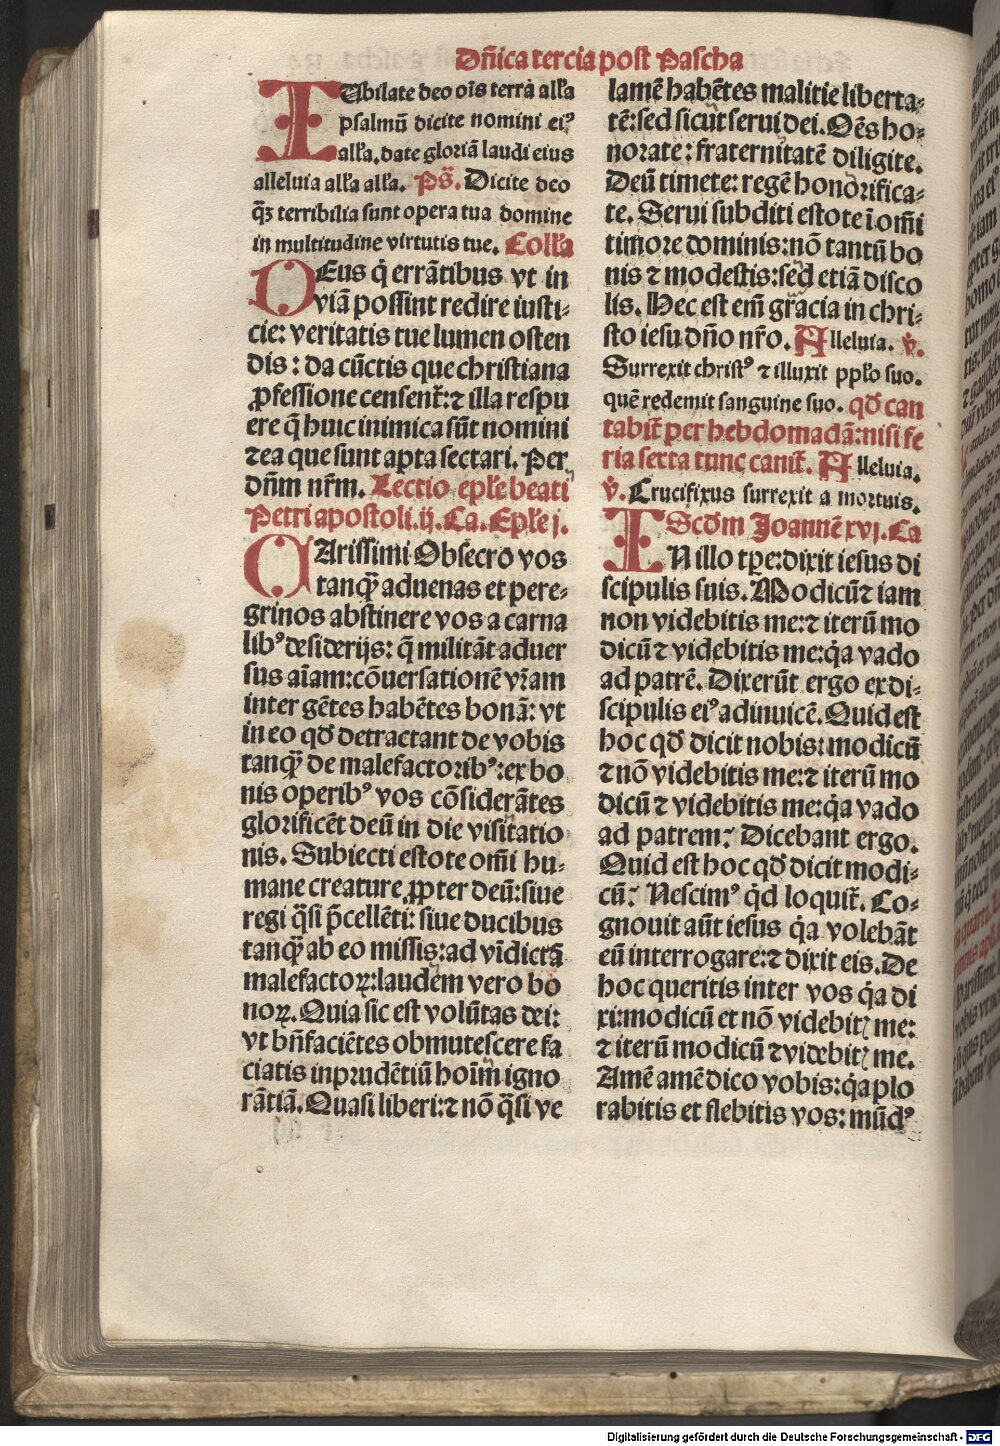 Dñica tercia post Pascha
IUbilate deo oīs terra alľa
psalmū dicite nomini eiꝰ
alľa. date gloriā laudi eius
alleluia alľa alľa. Pš. Dicite deo
qꝫ terribilia sunt opera tua domine
in multitudine virtutis tue. Colľa
DEus q̇ errātibus vt in
viā possint redire iusti-
cie: veritatis tue lumen osten
dis: da cūctis que christiana
ꝓfessione censent᷑: ⁊ illa respu
ere q̄ huic inimica sūt nomini
⁊ ea que sunt apta sectari. Per
dñm nr̄m. Lectio epľe beati
Petri apostoli. ij. Ca. Epľe j.
CArissimi Obsecro vos
tanq̄ꝫ aduenas et pere-
grinos abstinere vos a carna
libꝰ desiderijs: q̄ militāt aduer
sus aīam: cōuersationē vꝛam
inter gētes habētes bonā: vt
in eo qď detractant de vobis
tanq̄ꝫ de malefactoribꝰ: ex bo
nis operibꝰ vos cōsiderātes
glorificēt deū in die visitatio
nis. Subiecti estote om̄i hu-
mane creature ꝓpter deū: siue
regi q̄si p̄cellēti: siue ducibus
tanq̄ꝫ ab eo missis: ad vīdictā
malefactoꝝ: laudem vero bo
noꝝ. Quia sic est volūtas dei:
vt bn̄faciētes obmutescere fa
ciatis inprudētiū hoīm igno
rātiā. Quasi liberi: ⁊ nō q̄si ve
lamē habētes malitie liberta-
tē: sed sicut serui dei. Oēs ho-
norate: fraternitatē diligite.
Deū timete: regē honorifica-
te. Serui subditi estote ī om̄i
timore dominis: nō tantū bo
nis ⁊ modestis: sed etiā disco
lis. Hec est em̄ gracia in chri-
sto iesu dño nr̄o. Alleluia. v̇.
Surrexit christꝰ ⁊ illuxit ppľo suo.
quē redemit sanguine suo. qď can
tabit᷑ per hebdomadā: nisi fe
ria sexta tunc canit᷑. Alleluia.
v̇. Crucifixus surrexit a mortuis.
Scďm Joannē xvj. Ca
IN illo tꝑe: dixit iesus di
scipulis suis. Modicū ⁊ iam
non videbitis me: ⁊ iterū mo
dicū ⁊ videbitis me: q̇a vado
ad patrē. Dixerūt ergo ex di-
scipulis eiꝰ adinuicē. Quid est
hoc qď dicit nobis: modicū
⁊ nō videbitis me: ⁊ iterū mo
dicū ⁊ videbitis me: q̇a vado
ad patrem? Dicebant ergo.
Quid est hoc qď dicit modi-
cū? Nescimꝰ q̇d loquit᷑. Co-
gnouit aūt iesus q̇a volebāt
eū interrogare: ⁊ dixit eis. De
hoc queritis inter vos q̇a di
xi: modicū et nō videbitꝭ me:
⁊ iterū modicū ⁊ videbitꝭ me.
Amē amē dico vobis: q̇a plo
rabitis et flebitis vos: mūdꝰ
Digitalisierung gefördert durch die Deutsche Forschungsgemeinschaft - DFG